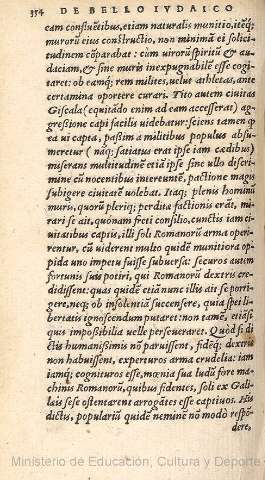 354 DE BELLO IVDAICO
eam confluẽtibus, etiam naturalis munitio, itẽq;
murorũ eius constructio, non minimã ei solici-
tudinem cõparabat: cùm uirorũ spiritũ & au-
daciam, & sine muris inexpugnabile esse cogi-
taret: ob eamq; rem milites, uelut athletas, ante
certamina oportere curari. Tito autem ciuitas
Giscala (equitãdo enim ad eam accesserat) ag-
gressione capi facilis uidebatur: sciens tamen q̃
ea ui capta, passim à militibus populus absu-
meretur (naq; satiatus erat ipse iam cædibus)
miserans multitudinẽ etiã ipse sine ullo discri-
mine cũ nocentibus intereuntẽ, pactione magis
subigere ciuitatẽ uolebat. Itaq; plenis hominũ
muris, quorũ pleriq; perditæ factionis erãt, mi-
rari se ait, quónam freti consilio, cunctis iam ci-
uitatibus captis, illi soli Romanorũ arma operi-
rentur, cũ uiderent multo quidẽ munitiora op-
pida uno impetu fuisse subuersa: securos autem
fortunis suis potiri, qui Romanorũ dextris cre-
didissent: quas quidẽ etiã nunc illis ait se porri-
gere, neq; ob insolentiã succensere, quia spei li-
bertatis ignoscendum putaret: non tamẽ, etiã si
quis impossibilia uelle perseueraret. Quòd si di
ctis humanissimis nõ paruissent, fidẽq; dextrũ
non habuissent, experturos arma crudelia: iam
iamq; cognituros esse, mœnia sua ludũ fore ma-
chinis Romanorũ, quibus fidentes, soli ex Gali-
læis sese ostentarent arrogãtes esse captiuos. His
dictis, populariũ quidẽ neminẽ nõ modò respõ-
dere,
Ministerio de Educación, Cultura y Deporte